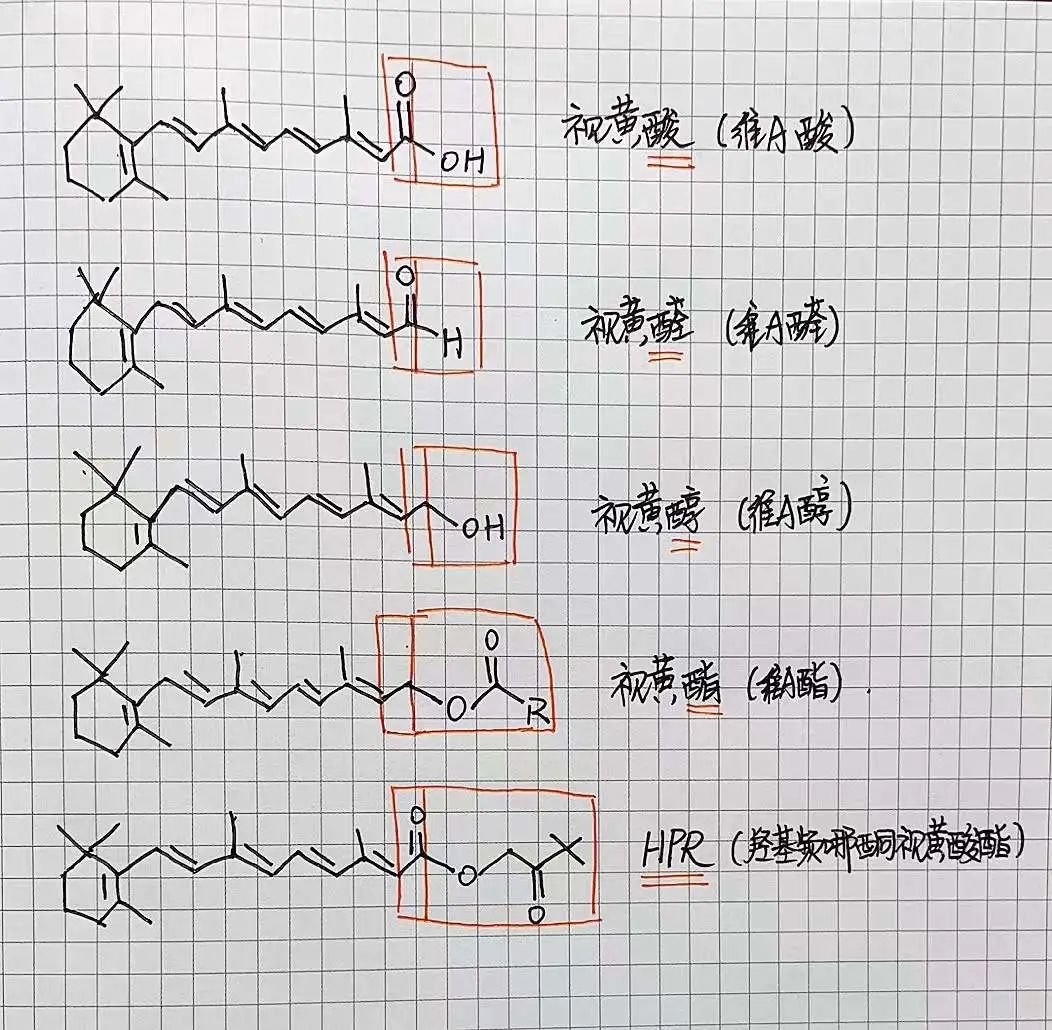 O
OH
视黄酸 (维A酸)
O
H
视黄醛 (维A醛)
OH
视黄醇 (维A醇)
O
O
R
视黄酯 (维A酯).
O
O
O
HPR (羟基频哪酮视黄酸酯)